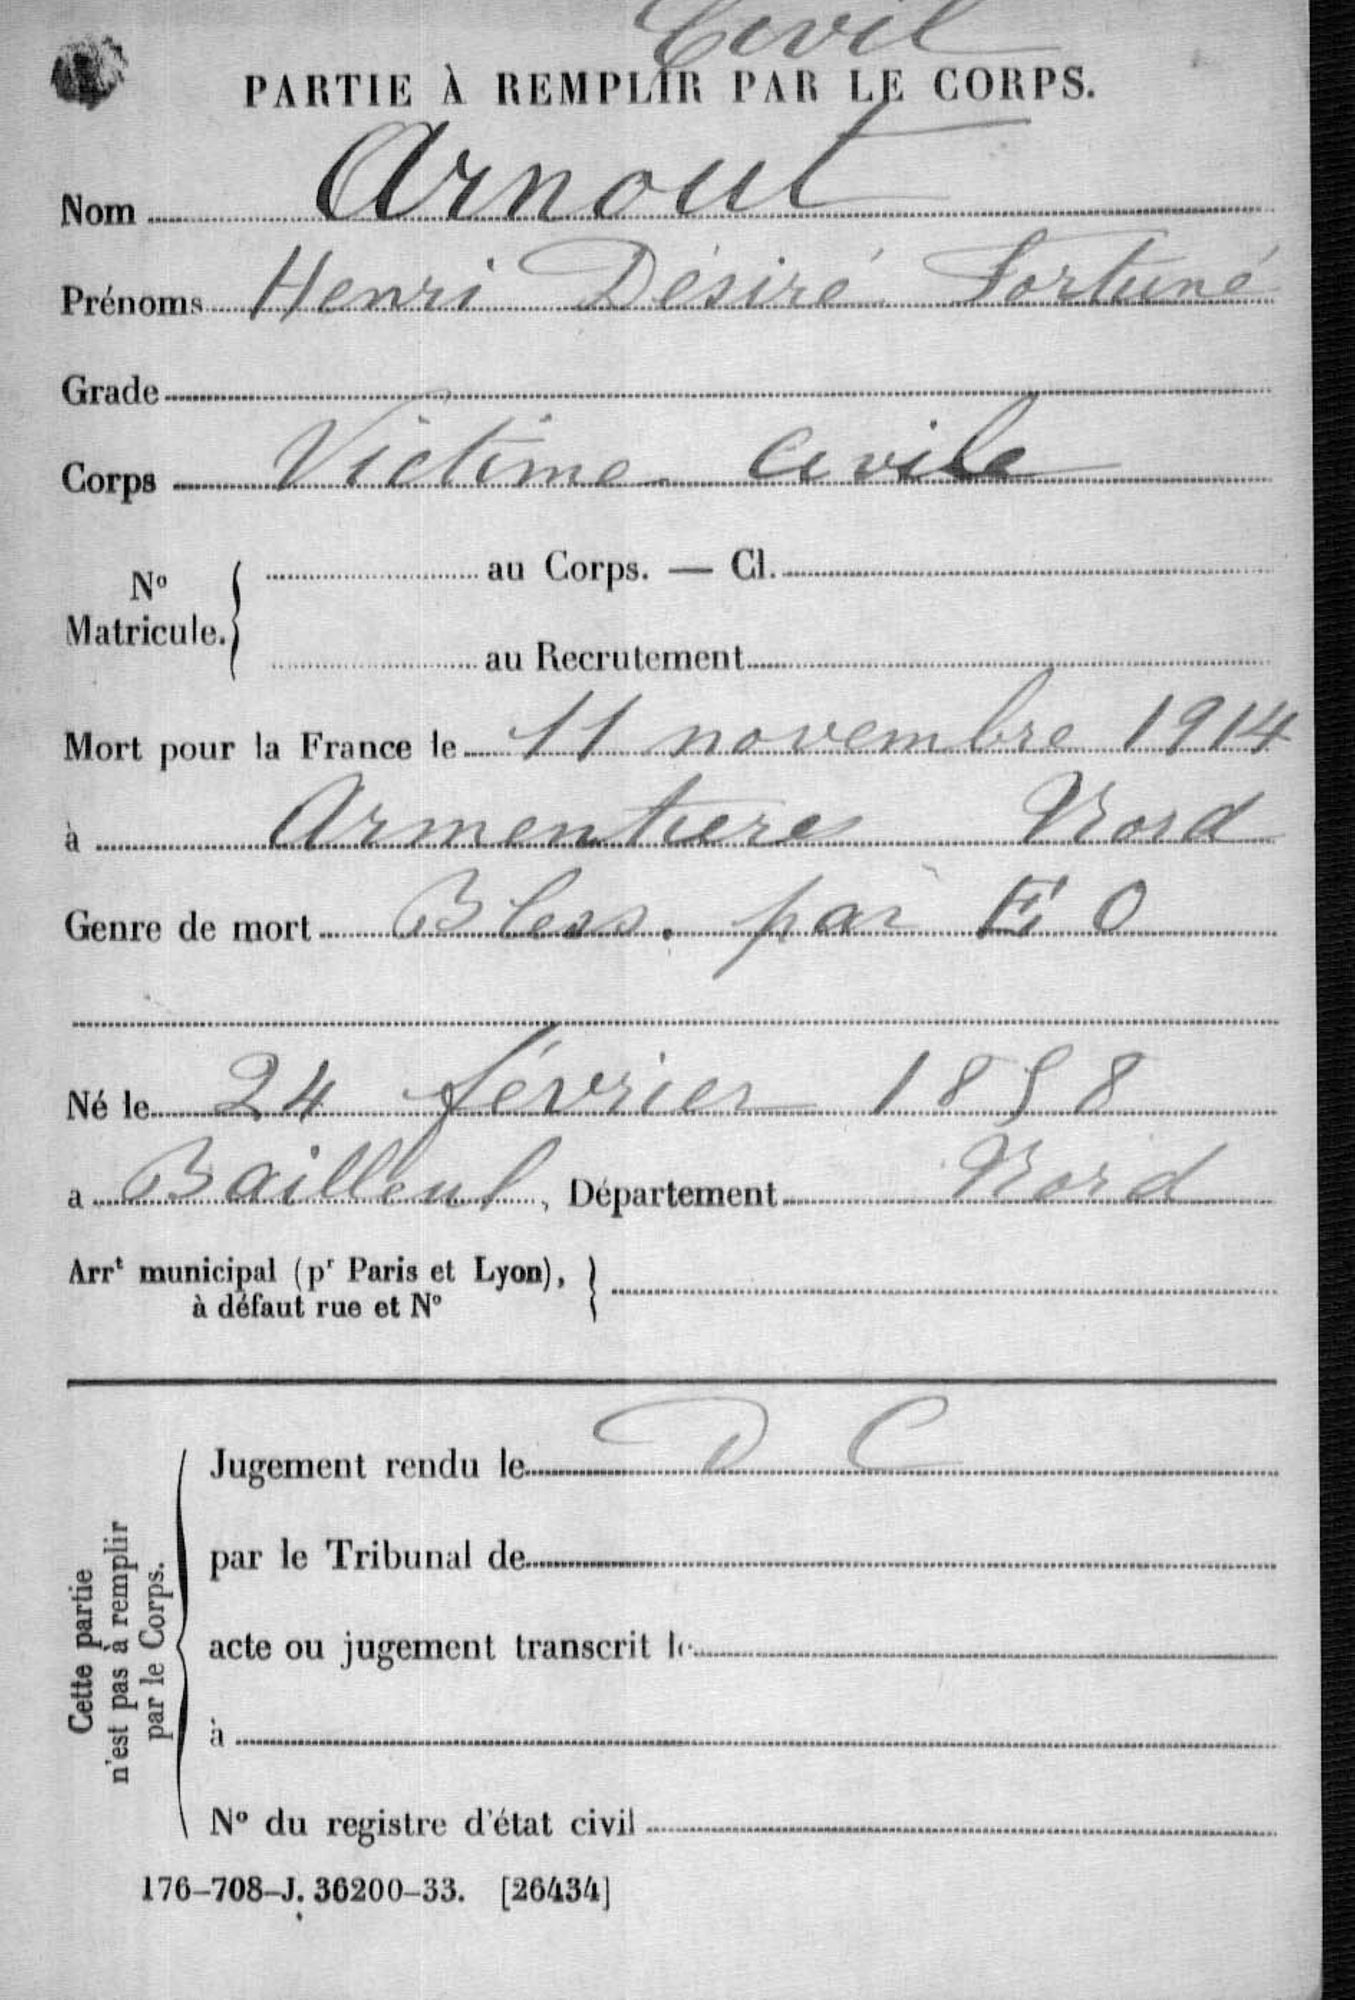 Civil
PARTIE À REMPLIR PAR LE CORPS.
Nom Arnout
Prénoms Henri Désiré Fortuné
Grade
Corps Victime Civile
Nº Matricule. { au Corps. — Cl.
au Recrutement
Mort pour la France le 11 novembre 1914
à Armentieres Nord
Genre de mort Bless. par E O
Né le 24 février 1858
a Bailleul, Département Nord
Arrt municipal (pr Paris et Lyon), }
à défaut rue et Nº
Cette partie
n'est pas à remplir
par le Corps.
Jugement rendu le D C
par le Tribunal de
acte ou jugement transcrit le
à
Nº du registre d'état civil
176-708-J. 36200-33. [26434]